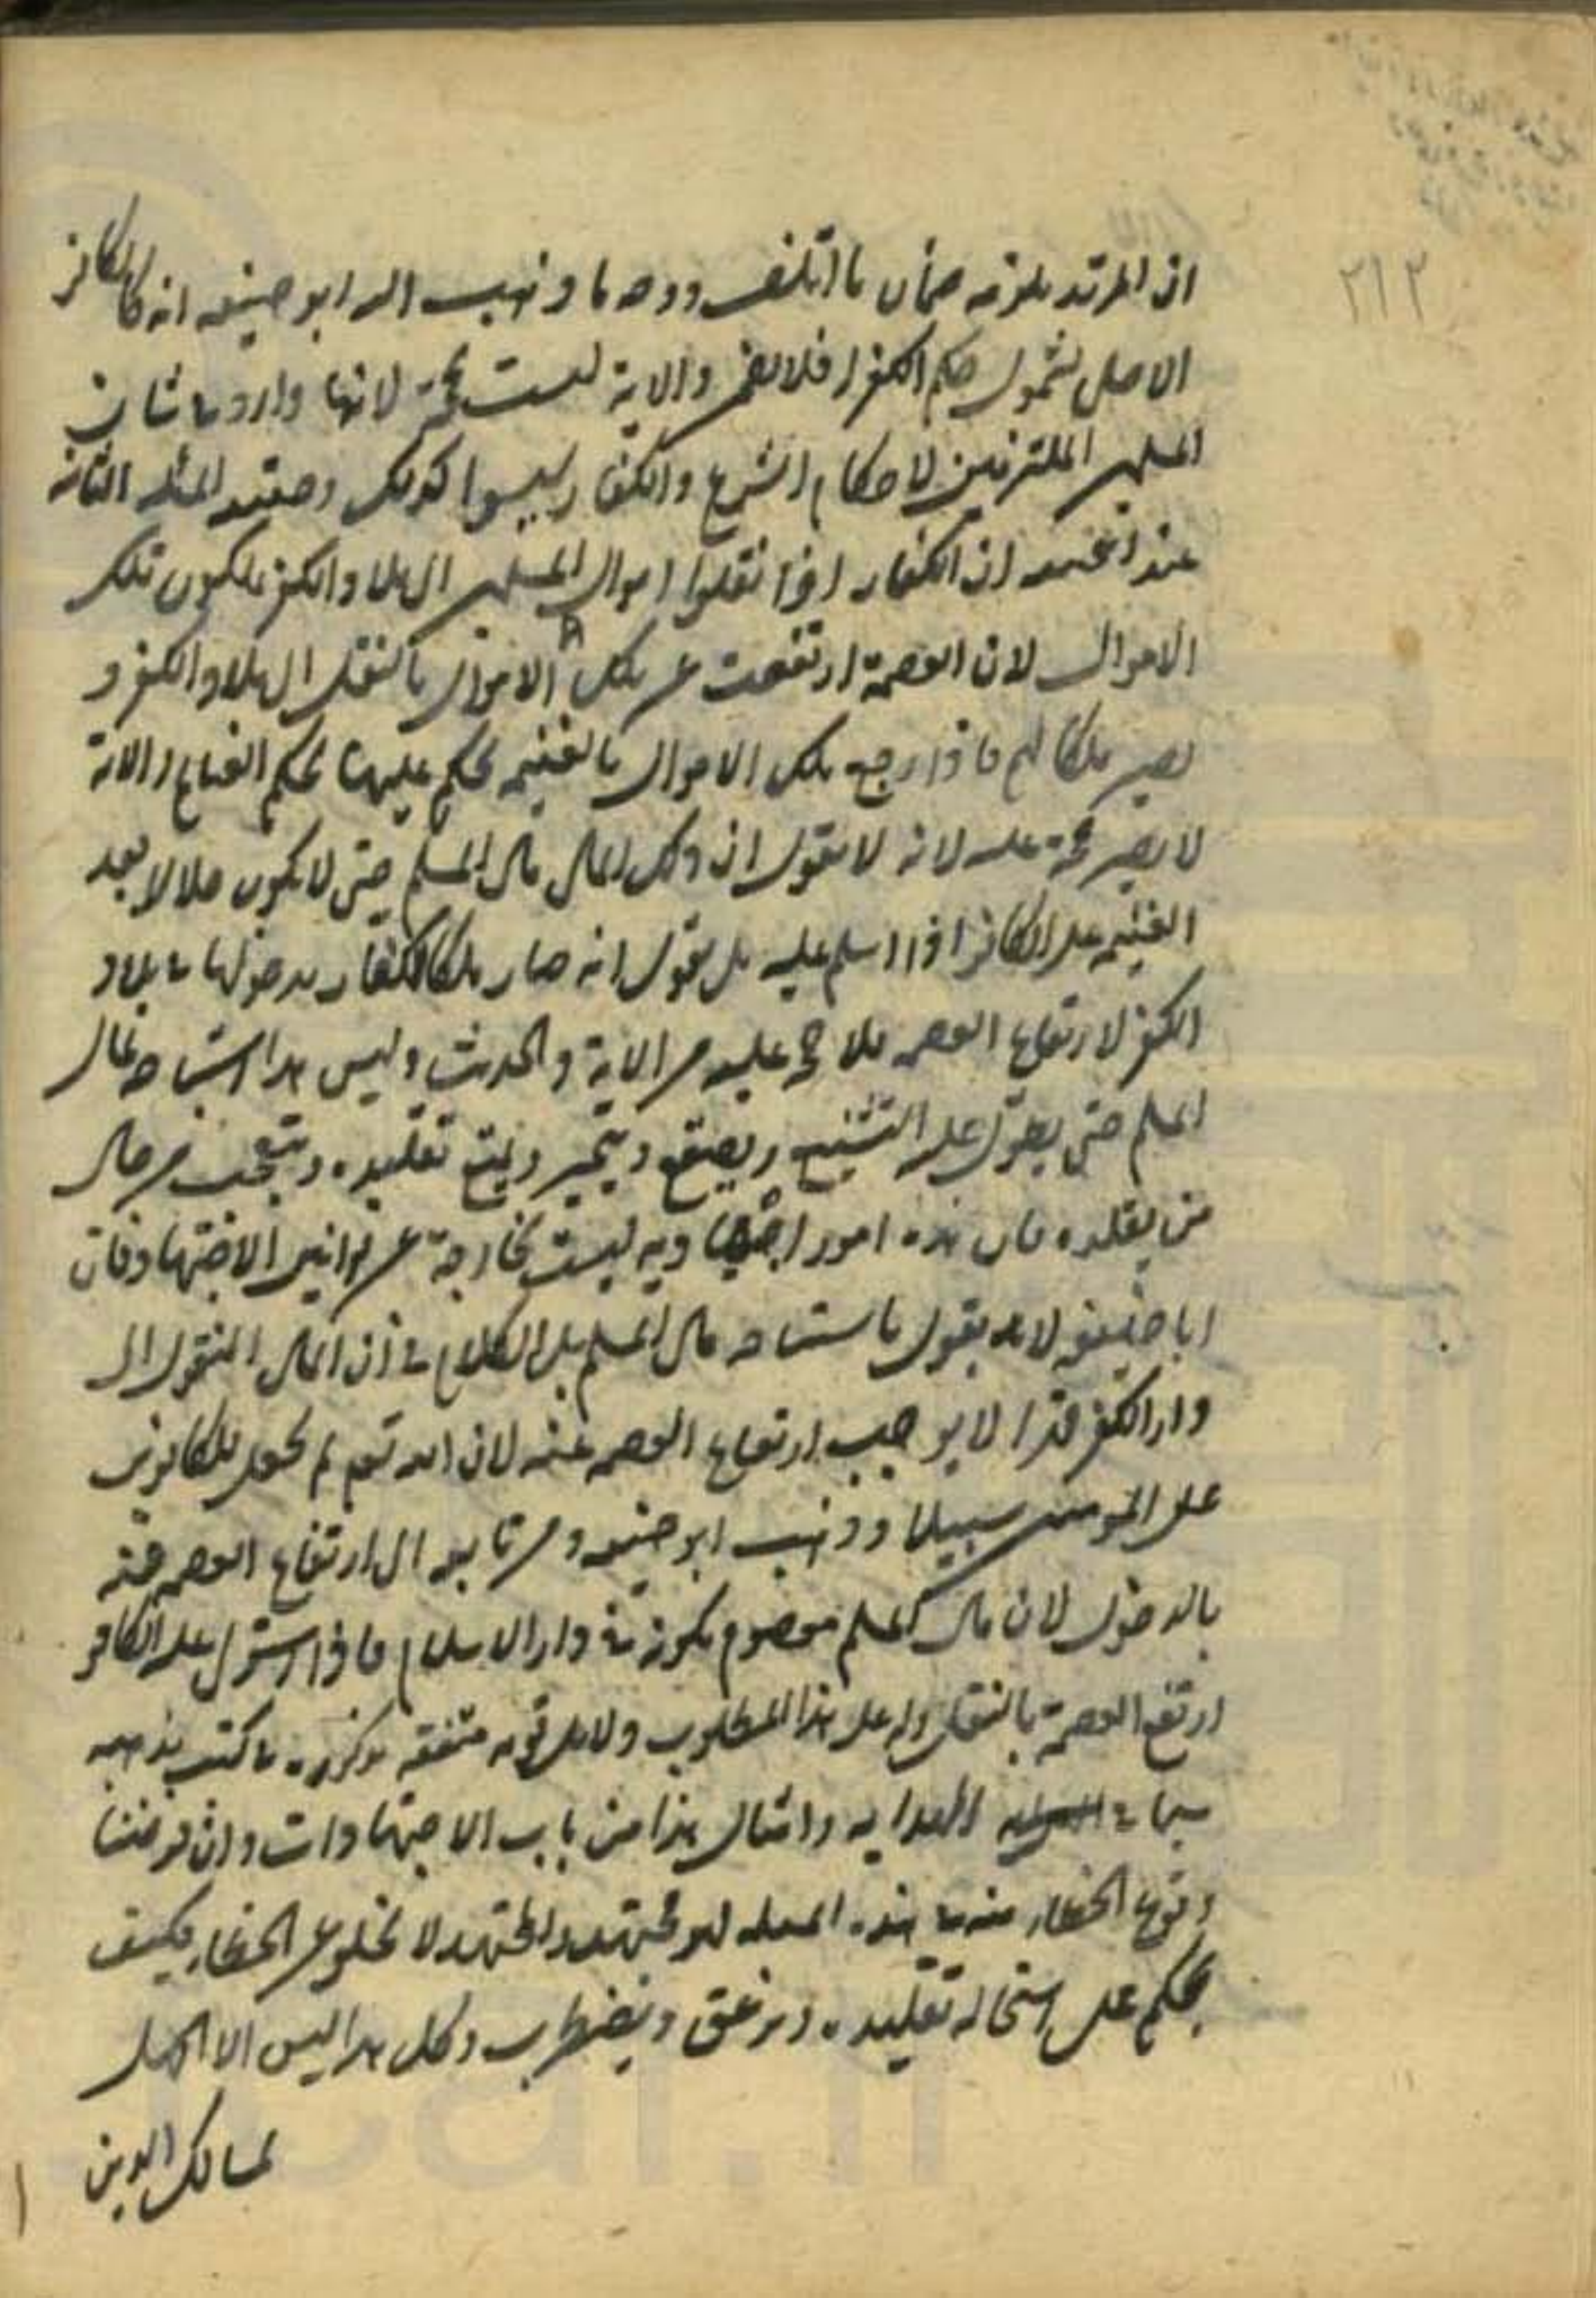 ٢١٢
ان المرتد يلزمه ضمان ما اتلف ووجه ما ذهب اليه ابو حنيفه انه كالكافر
الاصلي لشمول حكم الكفر فلا يضمن والاية ليست بحجة لانها واردة في شان
المسلمين الملتزمين لاحكام الشرع والكفار ليسوا كذلك وحقيقة المسئلة الثانية
عند ابي حنيفة ان الكفار اذا نقلوا اموال المسلمين الى بلاد الكفر يملكون تلك
الاموال لان العصمة ارتفعت عن تلك الاموال بالنقل الى بلاد الكفر و
يصير ملكا لهم فاذا رجع تلك الاموال بالغنيمة يحكم عليها بحكم الغنايم والاية
لا يصير حجة عليه لانه لا يقول ان ذلك المال مال المسلم حتى لا يكون حلالا بعد
الغنيمة على الكافر اذا اسلم عليه بل يقول انه صار ملكا للكفار بدخولها في بلاد
الكفر لارتفاع العصمة فلا حجة عليه من الاية والحديث وليس هذا استباحة لمال
المسلم حتى يطول عليه التشنيع ويصقع ويتحير ويمنع تقليده ويتعجب من حال
من يقلده فان هذه امور اجتهادية ليست بخارجة عن قوانين الاجتهاد فان
ابا حنيفة لا يقول باستباحة مال المسلم بل الكلام في ان المال المنقول الى
دار الكفر قهرا لا يوجب ارتفاع العصمة عنه لان الله تعم لم يجعل للكافرين
على المؤمنين سبيلا وذهب ابو حنيفة ومن تابعه الى ارتفاع العصمة عنه
بالدخول لان مال المسلم معصوم بكونه في دار الاسلام فاذا استولى عليه الكافر
ارتفع العصمة بالنقل وله على هذا المطلوب دلايل قوية متقنة مذكورة في كتب مذهبه
سيما في الهداية وامثال هذا من باب الاجتهادات وان فرضنا
وقوع الخطاء منه في هذه المسئلة فهو مجتهد والمجتهد لا يخلو عن الخطاء فكيف
يحكم على استحالة تقليده ويزعق ويضطرب وكل هذا ليس الا الجهل
لمسالك الدين